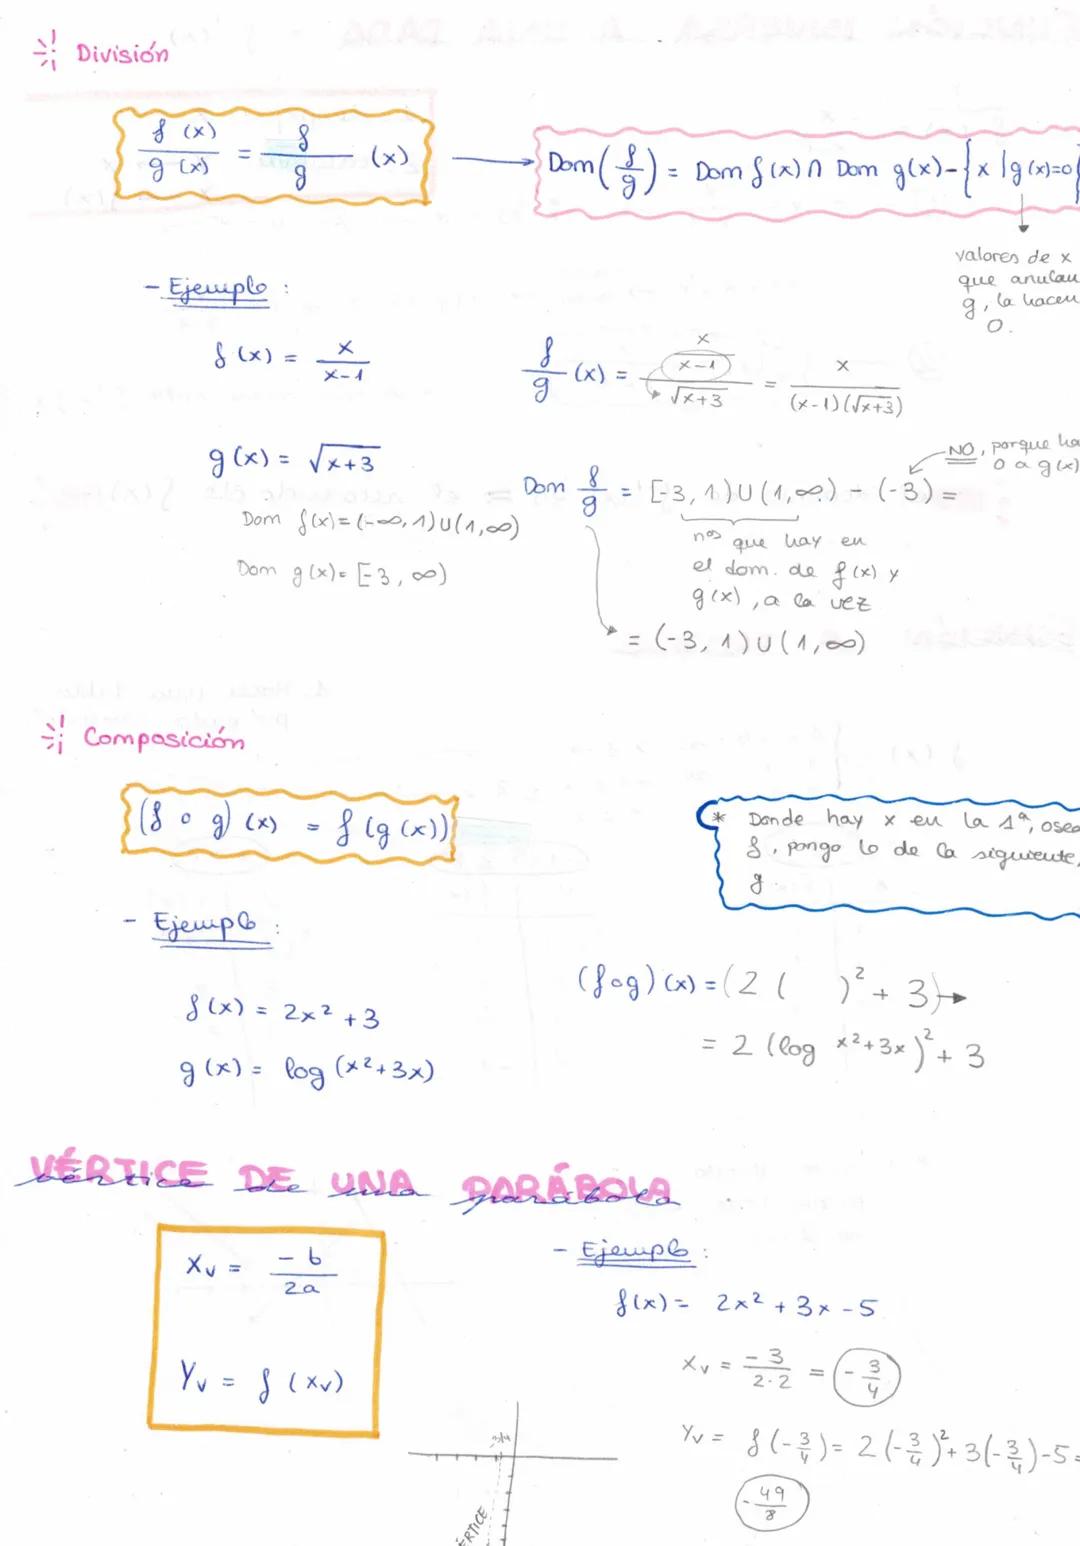 División
f(x)/g(x) = f/g (x) → Dom(f/g) = Dom f(x) ∩ Dom g(x) - {x | g(x)=0}
valores de x
que anulan
g, la hacen
0.
- Ejemplo :
f(x) = x/(x-1)
f/g (x) = (x/(x-1))/√(x+3) = x/((x-1)(√x+3))
g(x) = √(x+3)
NO, porque ha
0 a g(x)
Dom f/g = [-3, 1) U (1, ∞) - (-3) =
Dom f(x) = (-∞, 1) U (1, ∞)
nos que hay en
el dom. de f(x) y
g(x), a la vez
Dom g(x) = [-3, ∞)
= (-3, 1) U (1, ∞)
Composición
(f o g) (x) = f (g(x))
* Donde hay x en la 1ª, osea
f, pongo lo de la siguiente,
g.
- Ejemplo :
f(x) = 2x² + 3
g(x) = log (x²+3x)
(f o g) (x) = (2 (   )² + 3) →
= 2 (log x²+3x)² + 3
VÉRTICE DE UNA PARÁBOLA
vértice de una parábola
Xv = -b/2a
Yv = f (xv)
- Ejemplo :
f(x) = 2x² + 3x - 5
Xv = -3/2·2 = -3/4
Yv = f(-3/4) = 2(-3/4)² + 3(-3/4) - 5 =
-49/8
-3/4
ÉRTICE